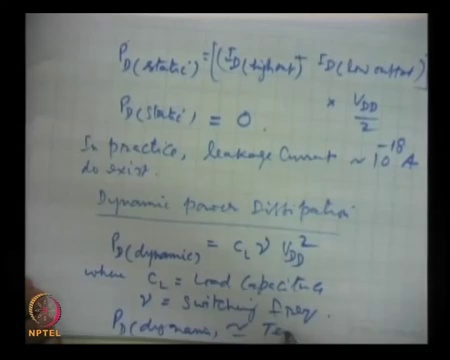 P_D(static) = [(I_D(high out) + I_D(low output)]
× V_DD/2
P_D(static) = 0.
In practice, leakage current ~ 10^-18 A
do exist.
Dynamic power Dissipation
P_D(dynamic) = C_L ν V_DD^2
where C_L = Load Capacitance
ν = Switching freq.
P_D(dynamic) ≃ Te
NPTEL